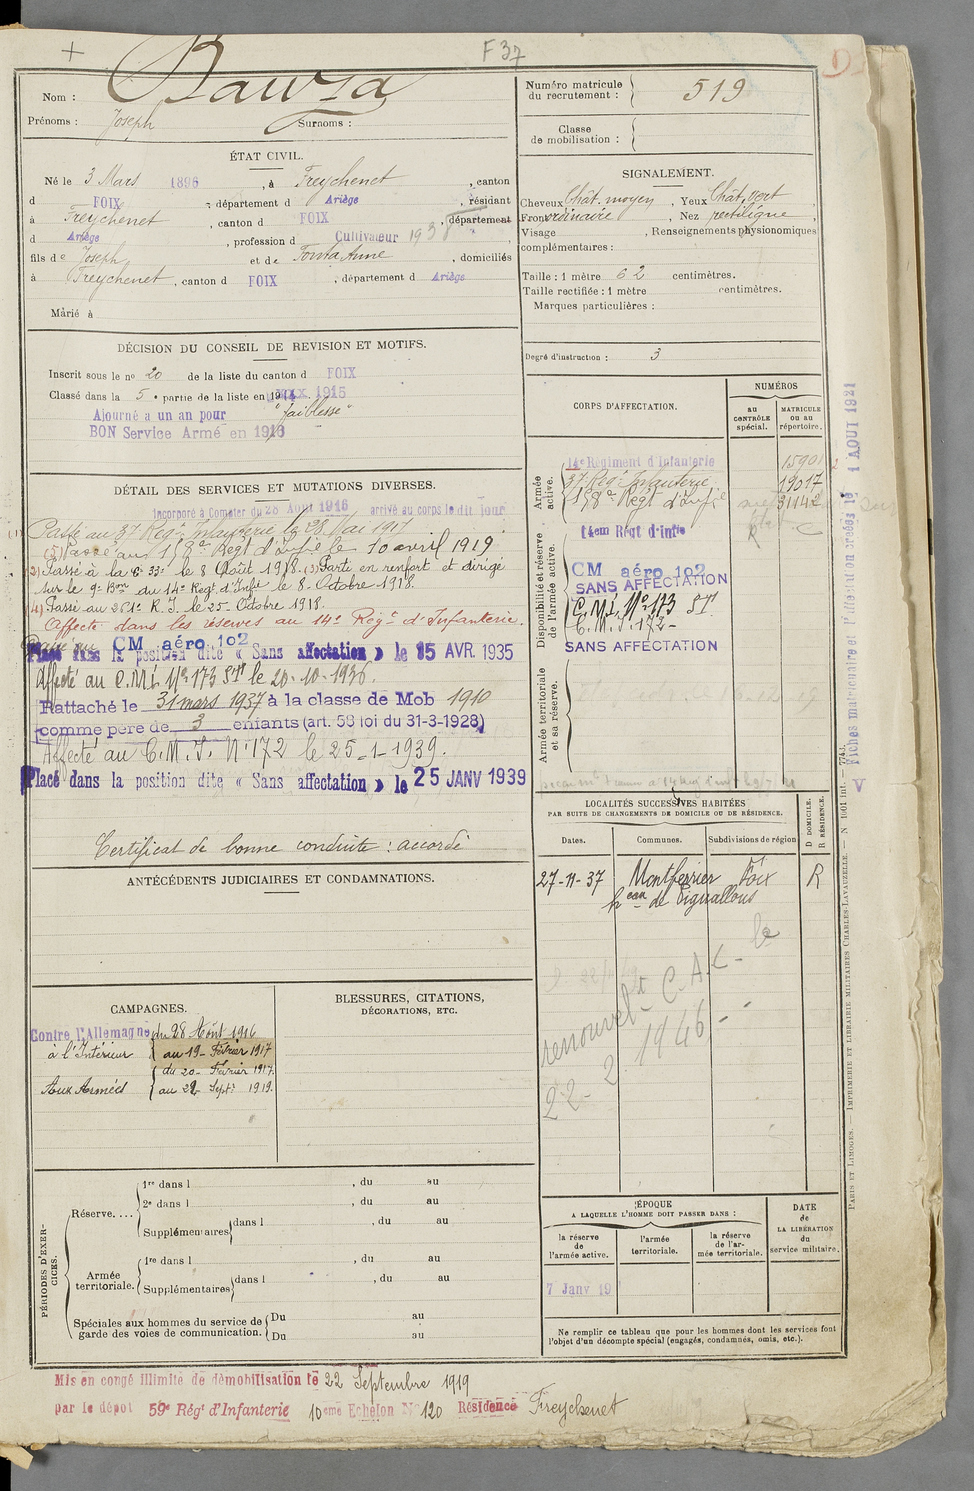 F 37
Nom : Bauza
Prénoms : Joseph Surnoms :
Numéro matricule du recrutement : 519
Classe de mobilisation :
ÉTAT CIVIL.
Né le 3 Mars 1896, à Freychenet, canton
d FOIX, département d Ariège, résidant
à Freychenet, canton d FOIX, département
d Ariège, profession d Cultivateur 1938
fils de Joseph et de Anne, domiciliés
à Freychenet, canton d FOIX, département d Ariège
Marié à
SIGNALEMENT.
Cheveux Chât. moyen, Yeux Chât. vert
Front ordinaire, Nez rectiligne,
Visage , Renseignements physionomiques
complémentaires :
Taille : 1 mètre 62 centimètres.
Taille rectifiée : 1 mètre centimètres.
Marques particulières :
Degré d'instruction : 3
DÉCISION DU CONSEIL DE REVISION ET MOTIFS.
Inscrit sous le no 20 de la liste du canton d FOIX
Classé dans la 5e partie de la liste en 1915
Ajourné a un an pour "faiblesse"
BON Service Armé en 1916
DÉTAIL DES SERVICES ET MUTATIONS DIVERSES.
Incorporé à Compter du 28 Août 1916 arrivé au corps le dit jour
(1) Passé au 37 Régt Infanterie le 28 Mai 1917
(5) Passé au 158e Regt d'Infie le 10 avril 1919
(2) Passé à la le 8 Août 1918. (3) Parte en renfort et dirigé
sur le 9e Bon du 14e Régt d'Inft le 8 Octobre 1918
(4) Passé au 261e R. I. le 25 Octobre 1918.
Affecté dans les réserves au 14e Régt d'Infanterie.
Passé au CM aéro 102
Placé dans la position dite « Sans affectation » le 15 AVR. 1935
Affecté au C.M.I. No 173 le 20-10-1936.
Rattaché le 31 mars 1937 à la classe de Mob 1910
comme père de 3 enfants (art. 58 loi du 31-3-1928)
Affecté au C.M.I. N°172 le 25-1-1939.
Placé dans la position dite « Sans affectation » le 25 JANV 1939
Certificat de bonne conduite : accordé
CORPS D'AFFECTATION.
NUMÉROS
AU CONTRÔLE spécial.
MATRICULE OU AU répertoire.
Armée active.
14e Régiment d'Infanterie 15901
37 Régt Infanterie 19017
158e Regt d'Infie 31142
Disponibilité et réserve de l'armée active.
14em Régt d'Infie
CM aéro 102
SANS AFFECTATION
C.M.I. No 173
C.M.I. 172-
SANS AFFECTATION
Armée territoriale et sa réserve.
LOCALITÉS SUCCESSIVES HABITÉES
PAR SUITE DE CHANGEMENTS DE DOMICILE OU DE RÉSIDENCE.
Dates. Communes. Subdivisions de région D DOMICILE. R RÉSIDENCE.
27-11-37 Montferrier Foix R
renouvelt C.A.C. le
22-2 1946
ANTÉCÉDENTS JUDICIAIRES ET CONDAMNATIONS.
CAMPAGNES.
Contre l'Allemagne du 28 Août 1916
à l'Intérieur au 19 Février 1917
Aux Armées du 20 Février 1917.
au 22 Septe 1919.
BLESSURES, CITATIONS,
DÉCORATIONS, ETC.
PÉRIODES D'EXERCICES.
Réserve....
1re dans l , du au
2e dans l , du au
Supplémentaires dans l , du au
Armée territoriale.
1re dans l , du au
Supplémentaires dans l , du au
Spéciales aux hommes du service de garde des voies de communication.
Du au
Du au
ÉPOQUE
A LAQUELLE L'HOMME DOIT PASSER DANS :
la réserve de l'armée active. l'armée territoriale. la réserve de l'armée territoriale.
DATE de LA LIBÉRATION du service militaire.
7 Janv 19
Ne remplir ce tableau que pour les hommes dont les services font
l'objet d'un décompte spécial (engagés, condamnés, omis, etc.).
Mis en congé illimité de démobilisation le 22 Septembre 1919
par le dépot 59e Régt d'Infanterie 10eme Echelon No 120 Résidence Freychenet
Fiches matriculaire et d'affectation créées le 1 AOUT 1921
PARIS ET LIMOGES. — IMPRIMERIE ET LIBRAIRIE MILITAIRES CHARLES-LAVAUZELLE. — N 1001 Int. — 774J.